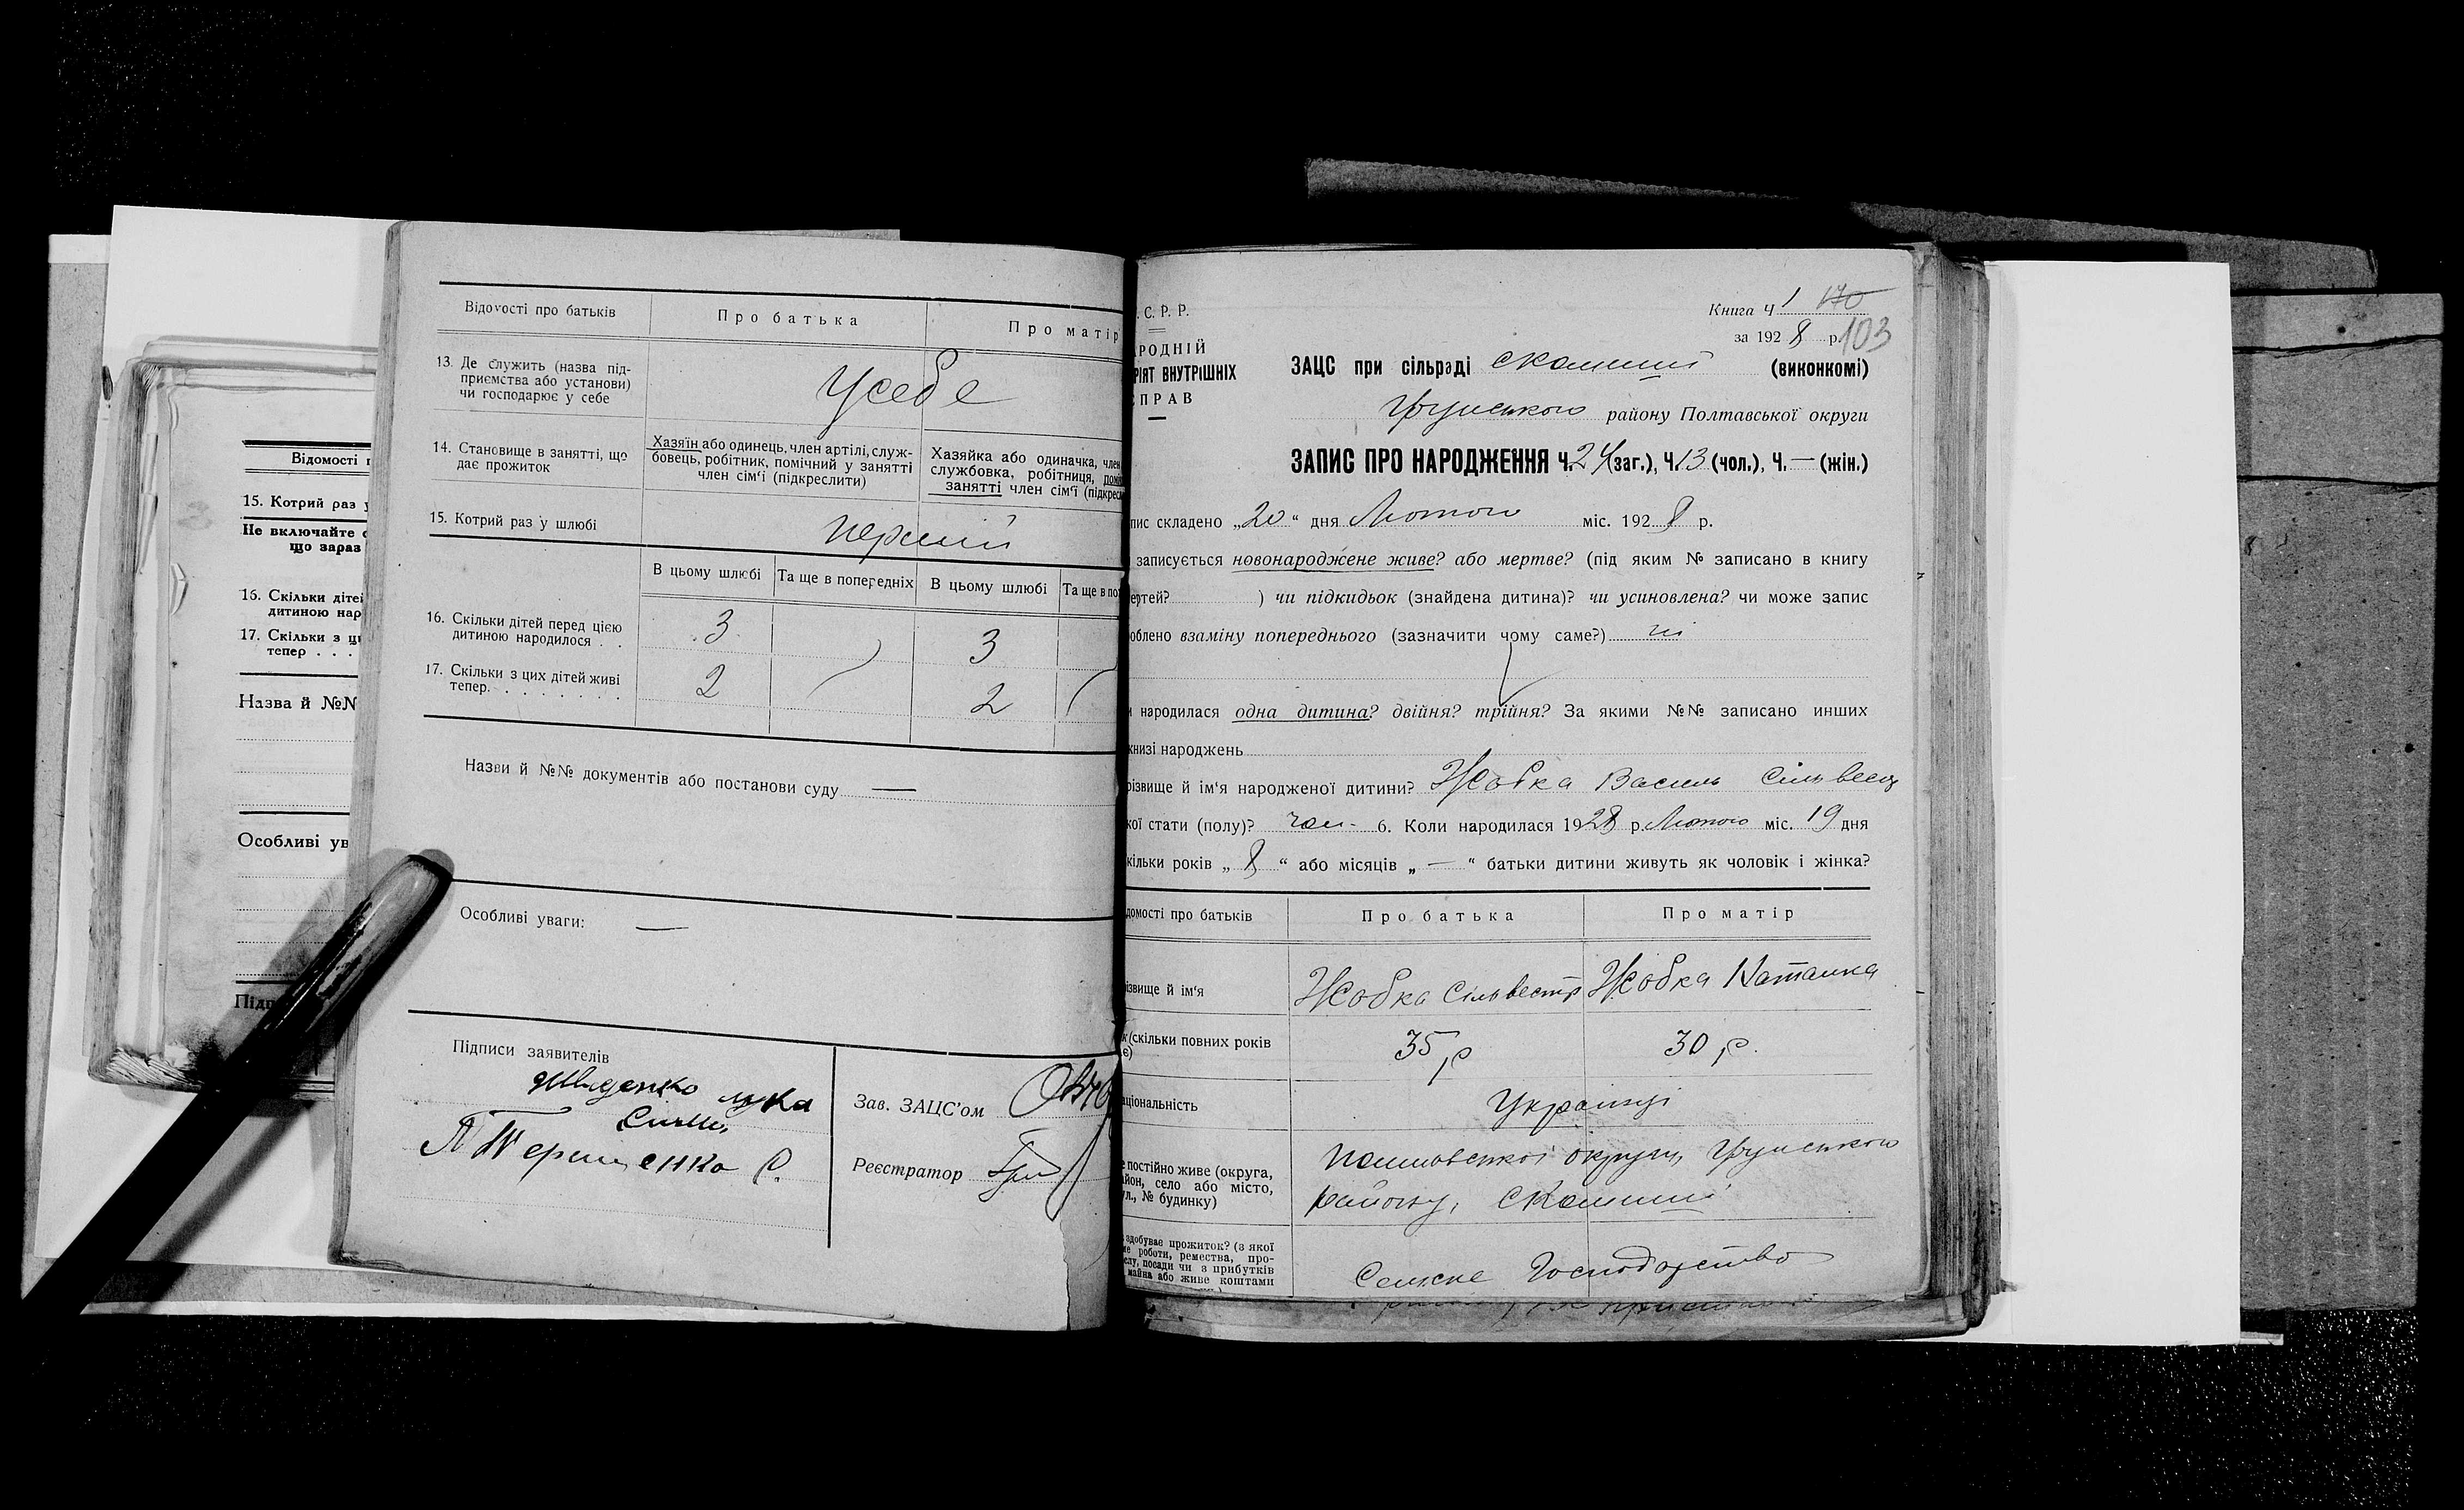 Відомості п
15. Котрий раз у
Не включайте
що зараз
16. Скільки дітей
дитиною нар
17. Скільки з ци
тепер . . .
Назва й №№
Особливі ув
Підп
Відомості про батьків
Про батька
Про матір
13. Де служить (назва під-
приємства або установи)
чи господарює у себе
У себе
14. Становище в занятті, що
дає прожиток
Хазяїн або одинець, член артілі, служ-
бовець, робітник, помічний у занятті
член сім'ї (підкреслити)
Хазяйка або одиначка, член
службовка, робітниця, помі
занятті член сім'ї (підкресл
15. Котрий раз у шлюбі
перший
В цьому шлюбі
Та ще в попередніх
В цьому шлюбі
Та ще в поп
16. Скільки дітей перед цією
дитиною народилося . .
3
3
17. Скільки з цих дітей живі
тепер. . . . . . . .
2
2
Назви й №№ документів або постанови суду —
Особливі уваги: —
Підписи заявителів
Лука
Терещенко
Зав. ЗАЦС'ом
Реєстратор
. С. Р. Р.
РОДНІЙ
РІЯТ ВНУТРІШНІХ
ПРАВ
Книга Ч 1 170
за 1928 р. 103
ЗАЦС при сільраді (виконкомі)
Грунського району Полтавської округи
ЗАПИС ПРО НАРОДЖЕННЯ Ч. 24 (заг.), Ч 13 (чол.), Ч. — (жін.)
пис складено „20" дня Лютого міс. 1928 р.
записується новонароджене живе? або мертве? (під яким № записано в книгу
ертей? ) чи підкидьок (знайдена дитина)? чи усиновлена? чи може запис
облено взаміну попереднього (зазначити чому саме?) ні
и народилася одна дитина? двійня? трійня? За якими №№ записано инших
книзі народжень
різвище й ім'я народженої дитини? Жобка Василь Сільвест
кої стати (полу)? чол. 6. Коли народилася 1928 р. Лютого міс. 19 дня
кільки років „8" або місяців „—" батьки дитини живуть як чоловік і жінка?
домості про батьків
Про батька
Про матір
різвище й ім'я
Жобка Сільвестр
Жобка Наталка
к (скільки повних років
є)
35 р
30 р.
аціональність
Українці
е постійно живе (округа,
айон, село або місто,
ул., № будинку)
Полтавської округи, Грунського
району,
здобуває прожиток? (з якої
ме роботи, ремества, про-
слу, посади чи з прибутків
майна або живе коштами
Сельске Господарство